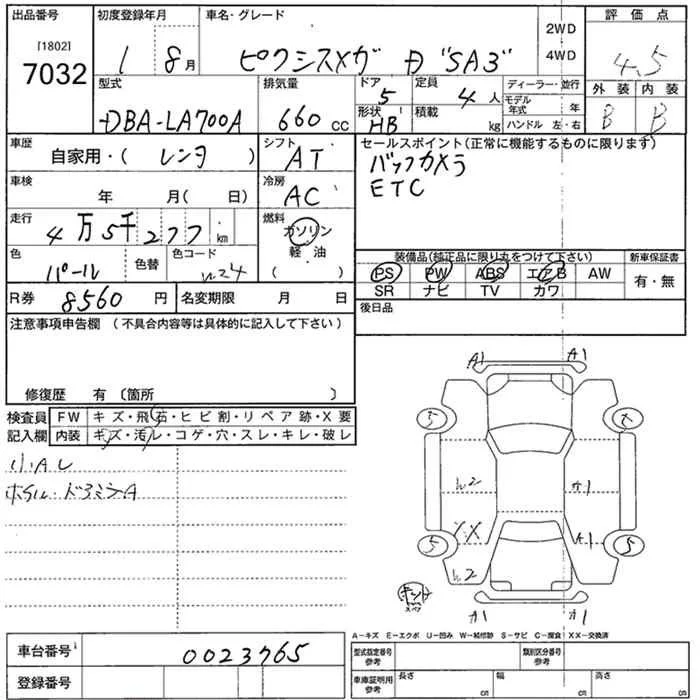 出品番号 初度登録年月 車名・グレード 評価点
[1802] 7032
1 8月 ピクシスメガ D "SA3" 2WD 4WD 4.5
型式 排気量 ドア 5 定員 4人 ディーラー・並行 外装 内装
DBA-LA700A 660 CC 形状 HB 積載 kg モデル年式 年 B B
ハンドル 左・右
車歴 自家用・( レンタ ) シフト AT セールスポイント(正常に機能するものに限ります)
バックカメラ
ETC
車検 年 月( 日) 冷房 AC
走行 4万5千277 km 燃料 ガソリン 軽油 ( )
色 パール 色替 色コード W24
装備品(純正品に限り丸をつけて下さい) 新車保証書
PS PW ABS エアB AW 有・無
SR ナビ TV カワ
R券 8560 円 名変期限 月 日 後日品
注意事項申告欄 (不具合内容等は具体的に記入して下さい)
修復歴 有 〔箇所 〕
検査員記入欄 FW キズ・飛石・ヒビ割・リペア跡・X要
内装 キズ・汚レ・コゲ・穴・スレ・キレ・破レ
小AU
A1 A1
5
W2 A1
XX A1
5 5
W2
A1 A1
A-キズ E-エクボ U-凹み W-補修跡 S-サビ C-腐食 XX-交換済
車台番号 0023765
型式指定番号 参考 類別区分番号 参考
登録番号
車庫証明用 参考 長さ cm 幅 cm 高さ cm